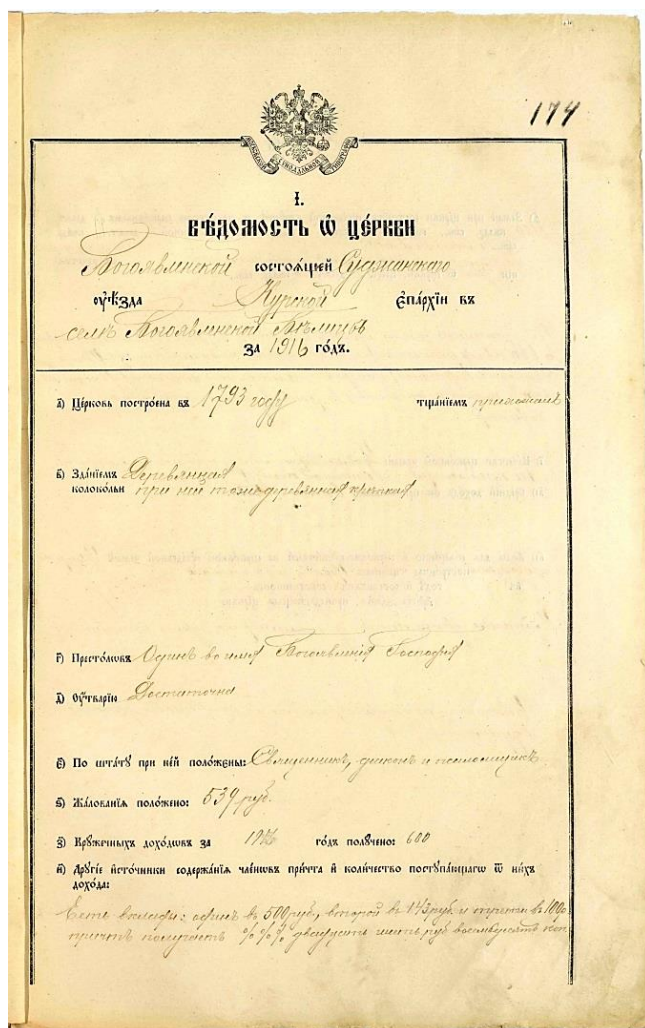 174
СѴНОДАЛЬНОЙ
І.
ВѢДОМОСТЬ Ѿ ЦЕ́РКВИ
Богоявленской состоѧ́щей Суджанскаго
оуѣ́зда Курской Єпа́рхїи въ
селѣ Богоявленской Бѣлицѣ
За 1916 го́дъ.
а҃) Це́рковь постро́ена въ 1793 году тща́нїемъ прихожанъ
в҃) Зда́нїемъ Деревянная
колоко́льни при ней также деревянная крѣпкая
г҃) Престо́ловъ Одинъ во имя Богоявленія Господня
д҃) Оу́тварїю Достаточна
є҃) По шта́тꙋ при не́й поло́жены: Священникъ, діаконъ и псаломщикъ
ѕ҃) Жа́лованїѧ поло́жено: 539 руб.
з҃) Крꙋ́жечныхъ дохо́довъ за 1916 го́дъ полꙋ́чено: 600
и҃) Дрꙋгі́е и҆сто́чники содержа́нїѧ чле́новъ при́чта и҆ коли́чество постꙋпа́ющагѡ ѿ ни́хъ
дохо́да:
Есть вклады: одинъ въ 500 руб, второй въ 143 руб. и третій въ 100р.
причтъ получаетъ %%% двадцать шесть руб восемьдесятъ коп